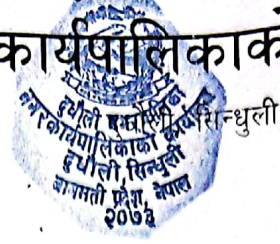 कार्यपालिकाको
सिन्धुली
दुधौली नगरपालिका
नगरकार्यपालिकाको कार्यालय
दुधौली, सिन्धुली
बागमती प्रदेश, नेपाल
२०७३